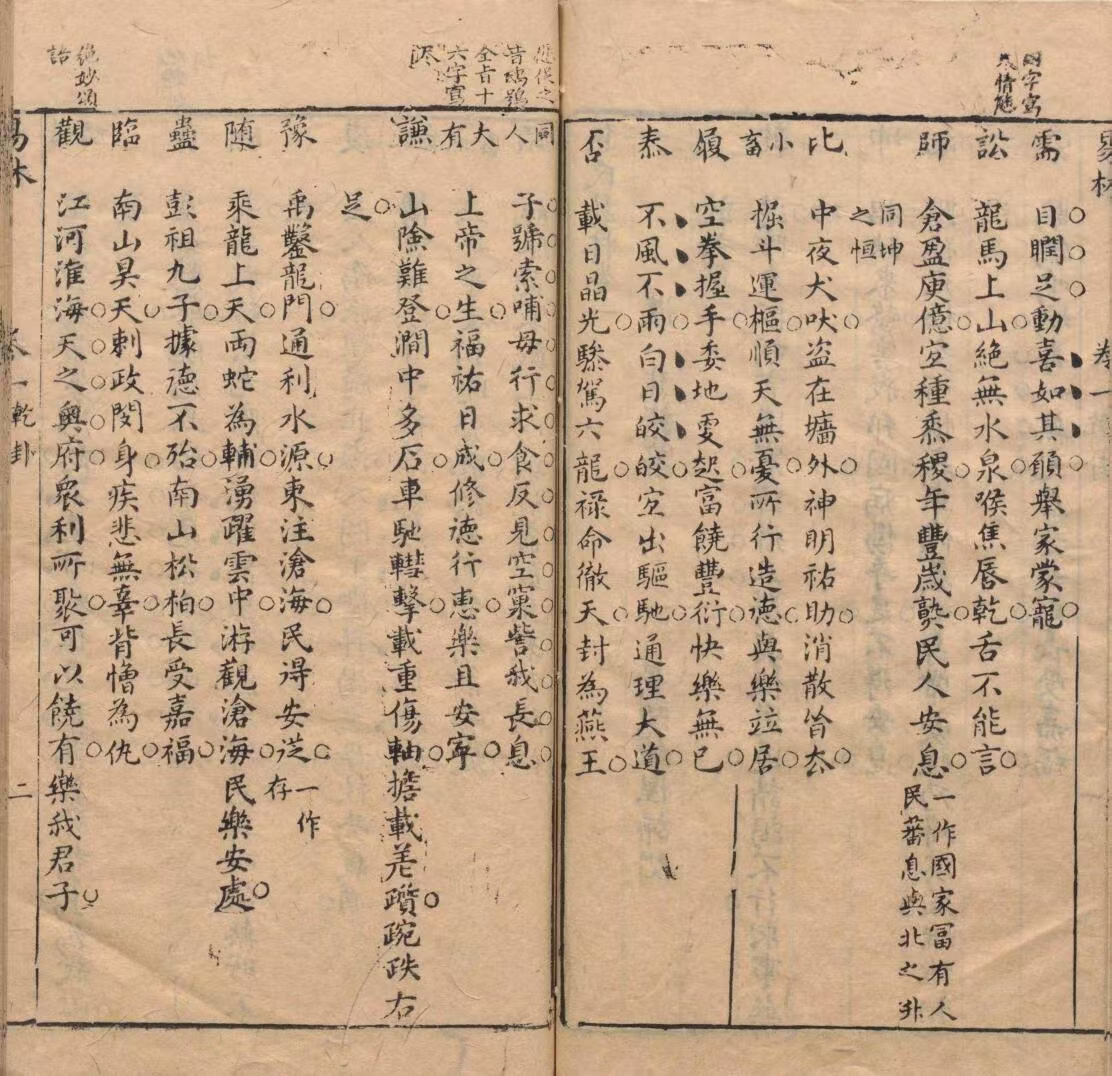 易林 卷一
四字寫
人情態
需 目瞤足動喜如其願舉家蒙寵
訟 龍馬上山絶無水泉喉焦唇乾舌不能言
師 倉盈庾億宜種黍稷年豐歲熟民人安息 一作國家富有人
民蕃息與北之升
同坤
之恒
比 中夜犬吠盗在墻外神明祐助消散皆去
小畜 掘斗運樞順天無憂所行造德與樂竝居
履 空拳握手委地更起富饒豐衍快樂無已
泰 不風不雨白日皎皎宜出驅馳通理大道
否 載日晶光驂駕六龍禄命徹天封為燕王
之
昔鴟鴞
全旨十
六字寫
同人 子號索哺母行求食反見空窠訾我長息
大有 上帝之生福祐日成修德行惠樂且安寧
謙 山險難登澗中多石車馳轊擊載重傷軸擔載差躓踠跌右
足
豫 禹鑿龍門通利水源東注滄海民得安茫 一作
存
随 乘龍上天兩蛇為輔湧躍雲中游觀滄海民樂安處
蠱 彭祖九子據德不殆南山松柏長受嘉福
臨 南山昊天刺政閔身疾悲無辜背憎為仇
絶妙頌
詒
觀 江河淮海天之奧府衆利所聚可以饒有樂我君子
易林 卷一 乾卦 二